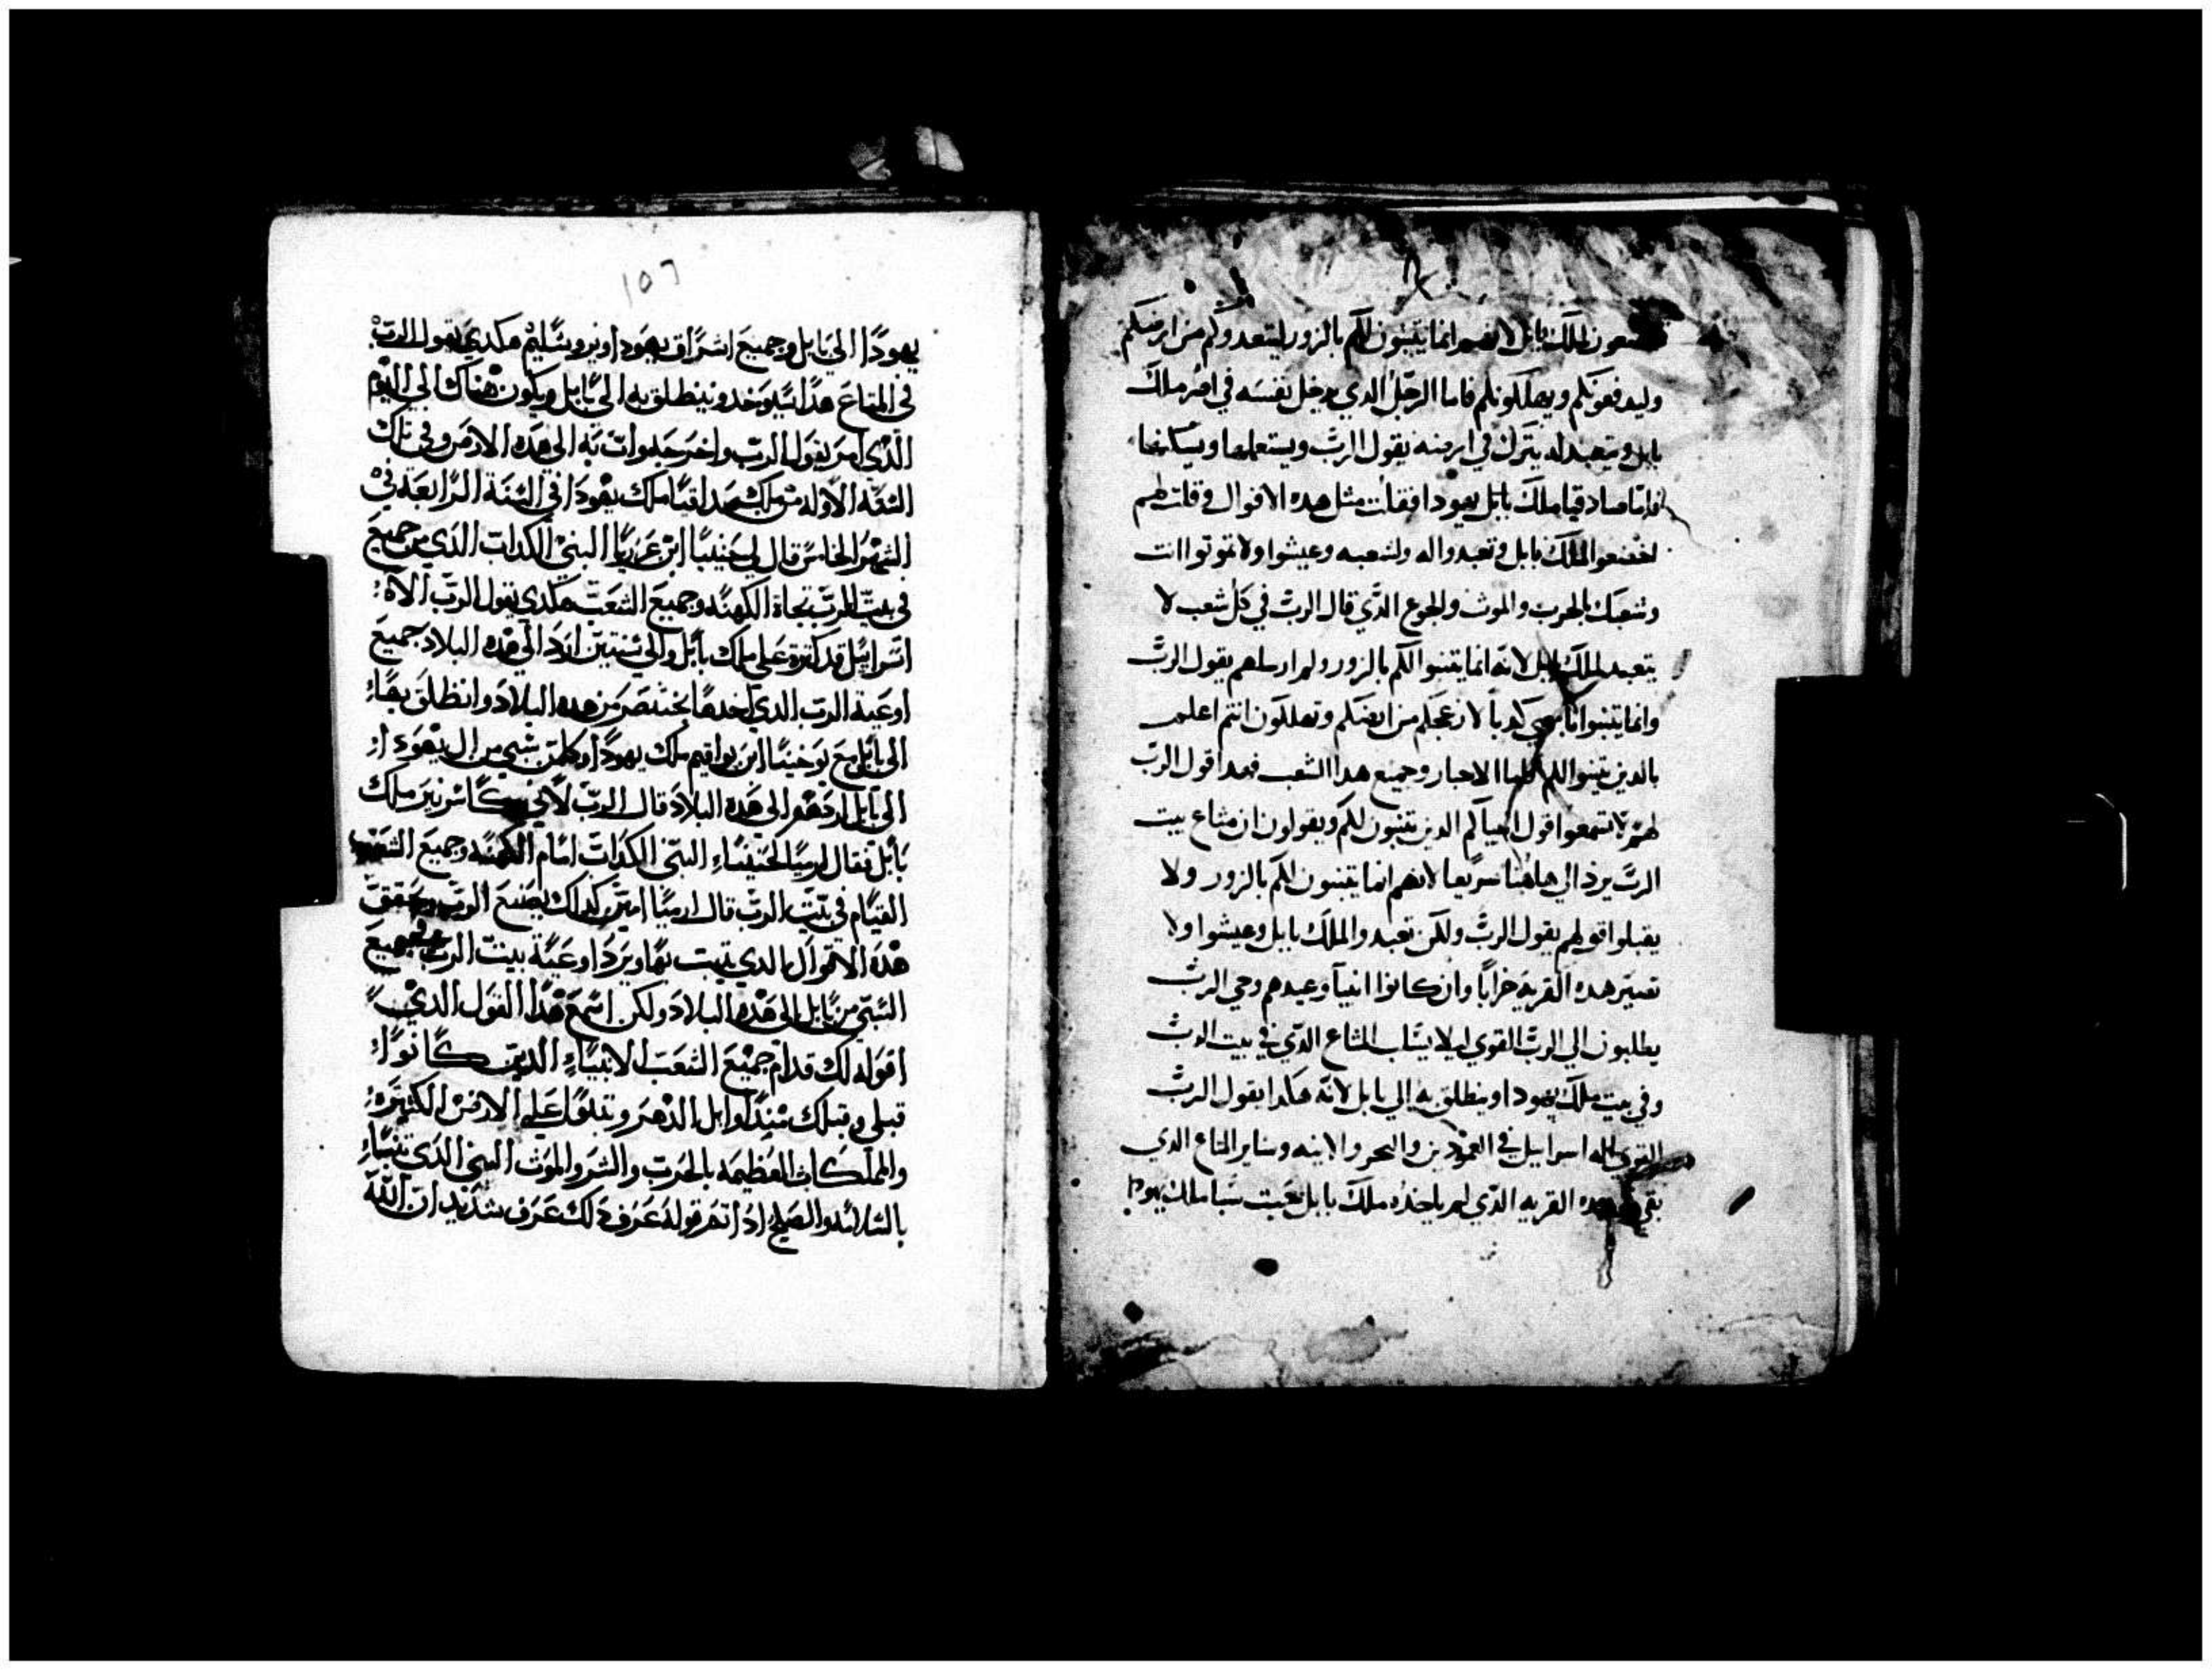 تخضعون لملك بابل لانهم انما يتنبون لكم بالزور ليتعدوكم من ارضكم
وليدفعونكم ويهلكونكم فاما الرجل الدي يدخل نفسه في امر ملك
بابل ويتعبد له يترك في ارضه يقول الرب ويستعملها ويسكنها
فاما صادقيا ملك يهودا فقلت مثل هده الاقوال وقلت لهم
اخضعوا لملك بابل وتعبدوا له ولشعبه وعيشوا ولا تموتوا انت
وشعبك بالحرب والموت والجوع الدي قال الرب في كل شعب لا
يتعبد لملك بابل لانه انما يتنبوا لكم بالزور ولم ارسلهم يقول الرب
وانما يتنبوا باسمي كدبا لازعجكم من ارضكم وتهلكون انتم اعلم
بالدين يتنبوا لكم الاحبار وجميع هدا الشعب فهدا قول الرب
لهم لا تسمعوا قول انبياكم الدين يتنبون لكم ويقولون ان متاع بيت
الرب يرد الي هاهنا سريعا لانهم انما يتنبون لكم بالزور ولا
يقبلوا قولهم يقول الرب ولكن تعبدوا لملك بابل وعيشوا ولا
تصير هده القرية خرابا وان كانوا انبيآ وعيدهم وحي الرب
يطلبون الي الرب القوي ليلا يساب المتاع الدي في بيت الرب
وفي بيت ملك يهودا وينطلق به الي بابل لانه هكدا يقول الرب
القوي اله اسراييل في العمودين والبحر والابنه وساير المتاع الدي
بقي هده القريه الدي لم ياخده ملك بابل ملك يهودا
١٥٦
يهودا الي بابل وجميع اشراف يهودا ويروشاليم هكدي يقول الرب
في المتاع هدا سيوخد وينطلق به الي بابل ويكون هناك الي اليوم
الدي امر يقول الرب واخرجه وات به الي هده الارض وفي تلك
السنه الاوله من ملك صداقيا ملك يهودا في السنة الرابعة في
الشهر الخامس قال لي حنينا ابن عزريا النبي الكداب الدي من جميع
في بيت الرب تجاة الكهنه وجميع الشعب هكدي يقول الرب الاه
اسراييل قد كترة علي ملك بابل والي سنتين ارد الي هده البلاد جميع
اوعية الرب الدي اخدها بختنصر من هده البلاد وانطلق بها
الي بابل مع يوخينا ابن يواقيم ملك يهودا وكلمن شبي من ال يهودا
الي بابل اردهم الي هده البلاد قال الرب لاني كاسر نير ملك
بابل فقال ارميا لحنينا النبي الكداب امام الكهنه وجميع الشعب
القيام في بيت الرب قال ارميا امين كدلك يصنع الرب ويحقق
هده الاقوال الدي تنبت بها ويرد اوعية بيت الرب وجميع
السبي من بابل الي هده البلاد ولكن اسمع هدا القول الدي
اقوله لك قدام جميع الشعب الانبياء الدين كانوا
قبلي وقبلك مندا وايل الدهر وتبنوا علي الارض الكثيره
والملكات العظيمه بالحرب والشر والموت النبي الدي تنبا
بالسلامه والصلح ادا تم قوله عرف دلك عرف شديد ان الله